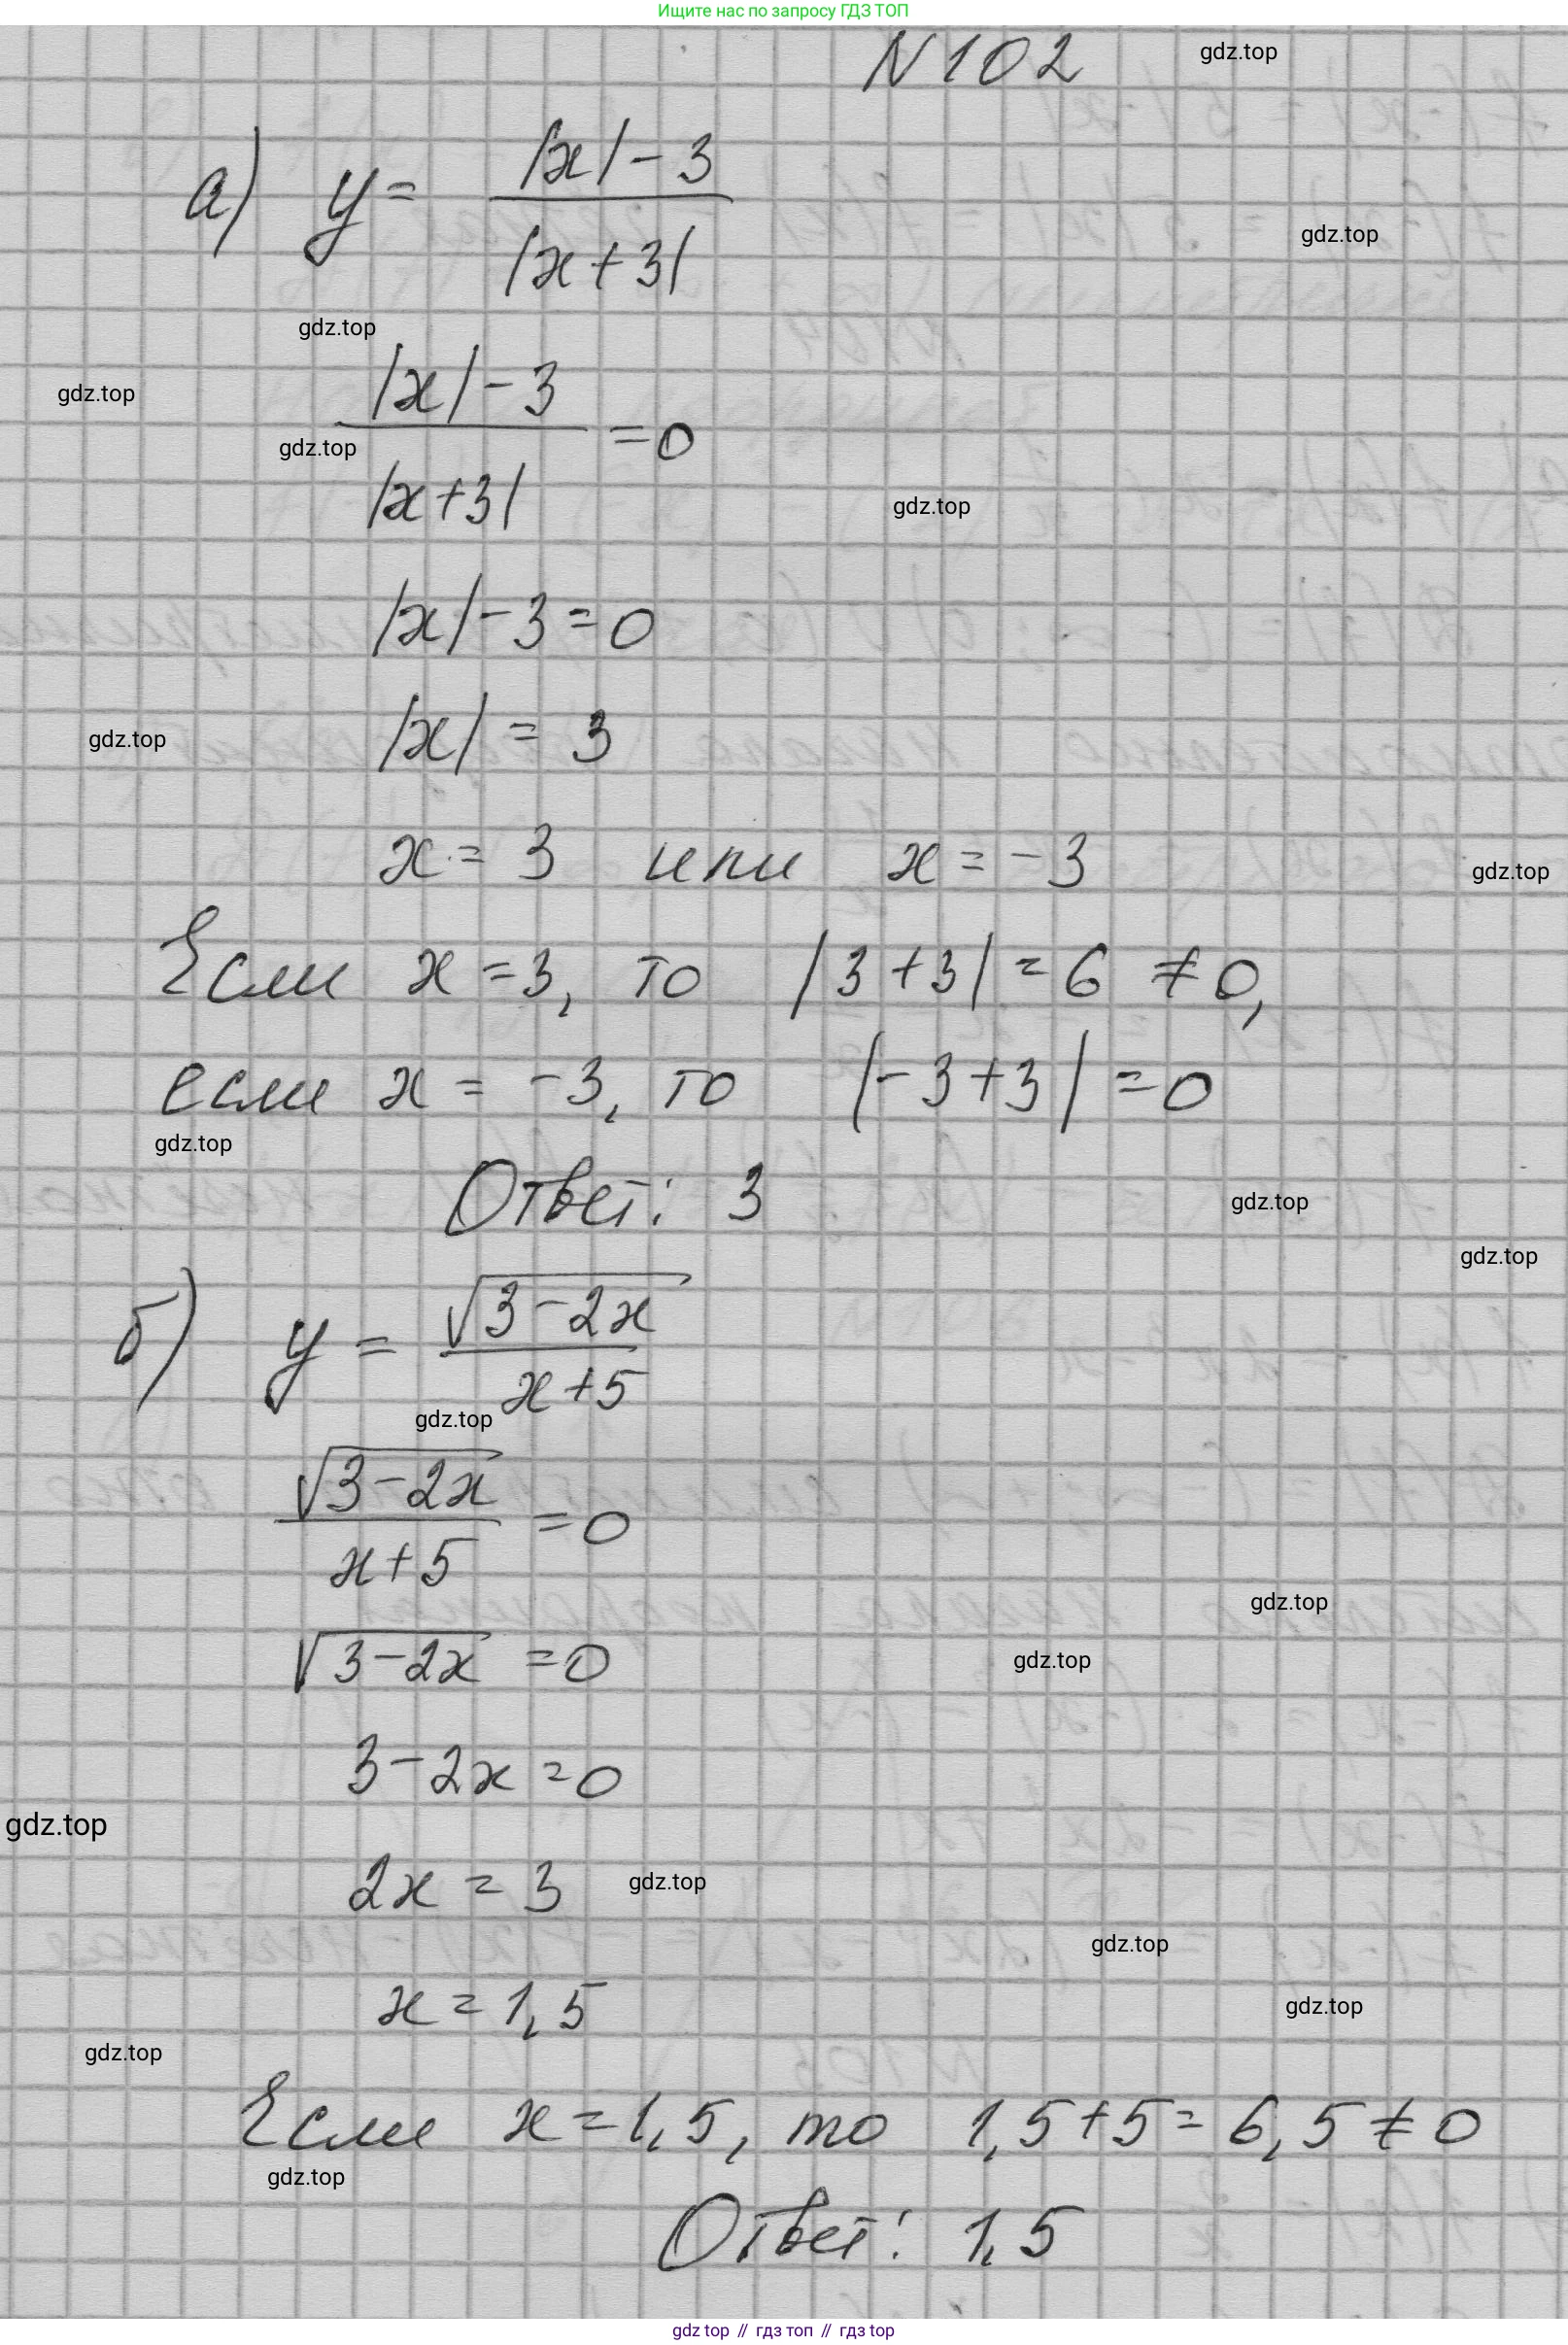 Ищите нас по запросу ГДЗ ТОП
N 102
gdz.top
а) y = |x| - 3 / |x + 3|
gdz.top
gdz.top
|x| - 3 / |x + 3| = 0
gdz.top
gdz.top
gdz.top
|x| - 3 = 0
|x| = 3
gdz.top
x = 3 или x = -3
gdz.top
Если x = 3, то |3 + 3| = 6 ≠ 0,
если x = -3, то |-3 + 3| = 0
gdz.top
Ответ: 3
gdz.top
gdz.top
б) y = √(3 - 2x) / x + 5
gdz.top
√(3 - 2x) / x + 5 = 0
gdz.top
√(3 - 2x) = 0
gdz.top
3 - 2x = 0
gdz.top
2x = 3
gdz.top
gdz.top
x = 1,5
gdz.top
gdz.top
Если x = 1,5, то 1,5 + 5 = 6,5 ≠ 0
gdz.top
Ответ: 1,5
gdz top // гдз топ // гдз top